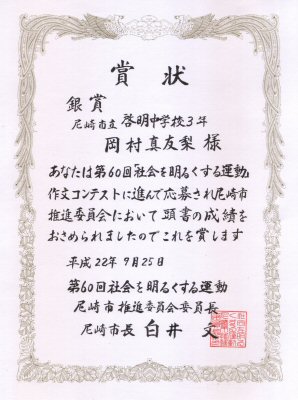 賞状
銀賞
尼崎市立 啓明中学校3年
岡村真友梨 様
あなたは第60回「社会を明るくする運動」
作文コンテストに進んで応募され尼崎市
推進委員会において頭書の成績を
おさめられましたのでこれを賞します
平成22年 9月25日
第60回社会を明るくする運動
尼崎市推進委員会委員長
尼崎市長 白井 文